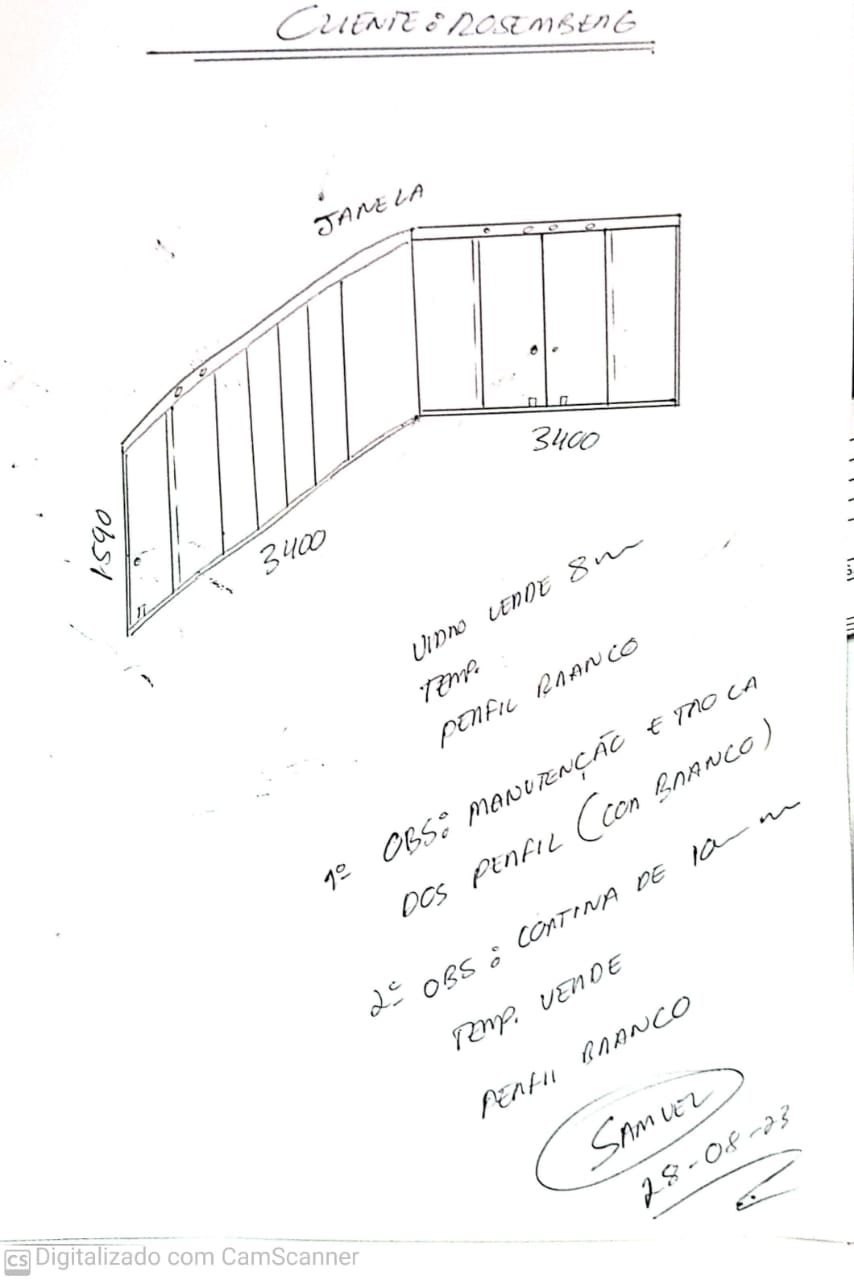 CLIENTE: ROSEMBERG
JANELA
3400
1.590
3400
VIDRO VERDE 8m
TEMP.
PERFIL BRANCO
1º OBS: MANUTENÇÃO E TROCA
DOS PERFIL (COR BRANCO)
2º OBS: CORTINA DE 10m m
TEMP. VERDE
PERFIL BRANCO
SAMUEL
28-08-23
CS Digitalizado com CamScanner